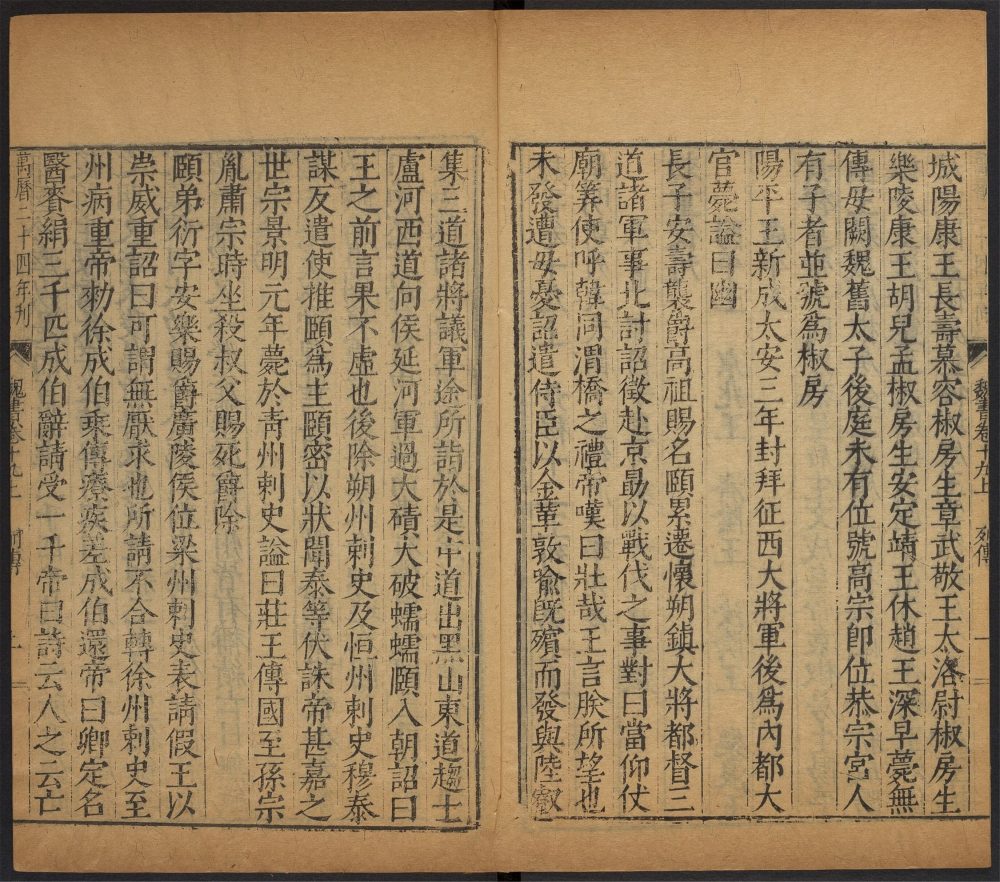 城陽康王長壽慕容椒房生章武敬王太洛尉椒房生
樂陵康王胡兒孟椒房生安定靖王休趙王深早薨無
傳母闕魏舊太子後庭未有位號高宗即位恭宗宮人
有子者並號爲椒房
陽平王新成太安三年封拜征西大將軍後爲內都大
官薨謚曰幽
長子安壽襲爵高祖賜名頤累遷懷朔鎮大將都督三
道諸軍事北討詔徵赴京勗以戰伐之事對曰當仰仗
廟筭使呼韓同渭橋之禮帝嘆曰壯哉王言朕所望也
未發遭母憂詔遣侍臣以金革敦喻既殯而發與陸叡
魏書卷十九上 列傳 二
集三道諸將議軍途所詣於是中道出黑山東道趨士
盧河西道向侯延河軍過大磧大破蠕蠕頤入朝詔曰
王之前言果不虛也後除朔州刺史及恒州刺史穆泰
謀反遣使推頤爲主頤密以狀聞泰等伏誅帝甚嘉之
世宗景明元年薨於青州刺史謚曰莊王傳國至孫宗
胤肅宗時坐殺叔父賜死爵除
頤弟衍字安樂賜爵廣陵侯位梁州刺史表請假王以
崇威重詔曰可謂無厭求也所請不合轉徐州刺史至
州病重帝勑徐成伯乘傳療疾差成伯還帝曰卿定名
醫賚絹三千匹成伯辭請受一千帝曰詩云人之云亡
萬曆二十四年刊 魏書卷十九上 列傳